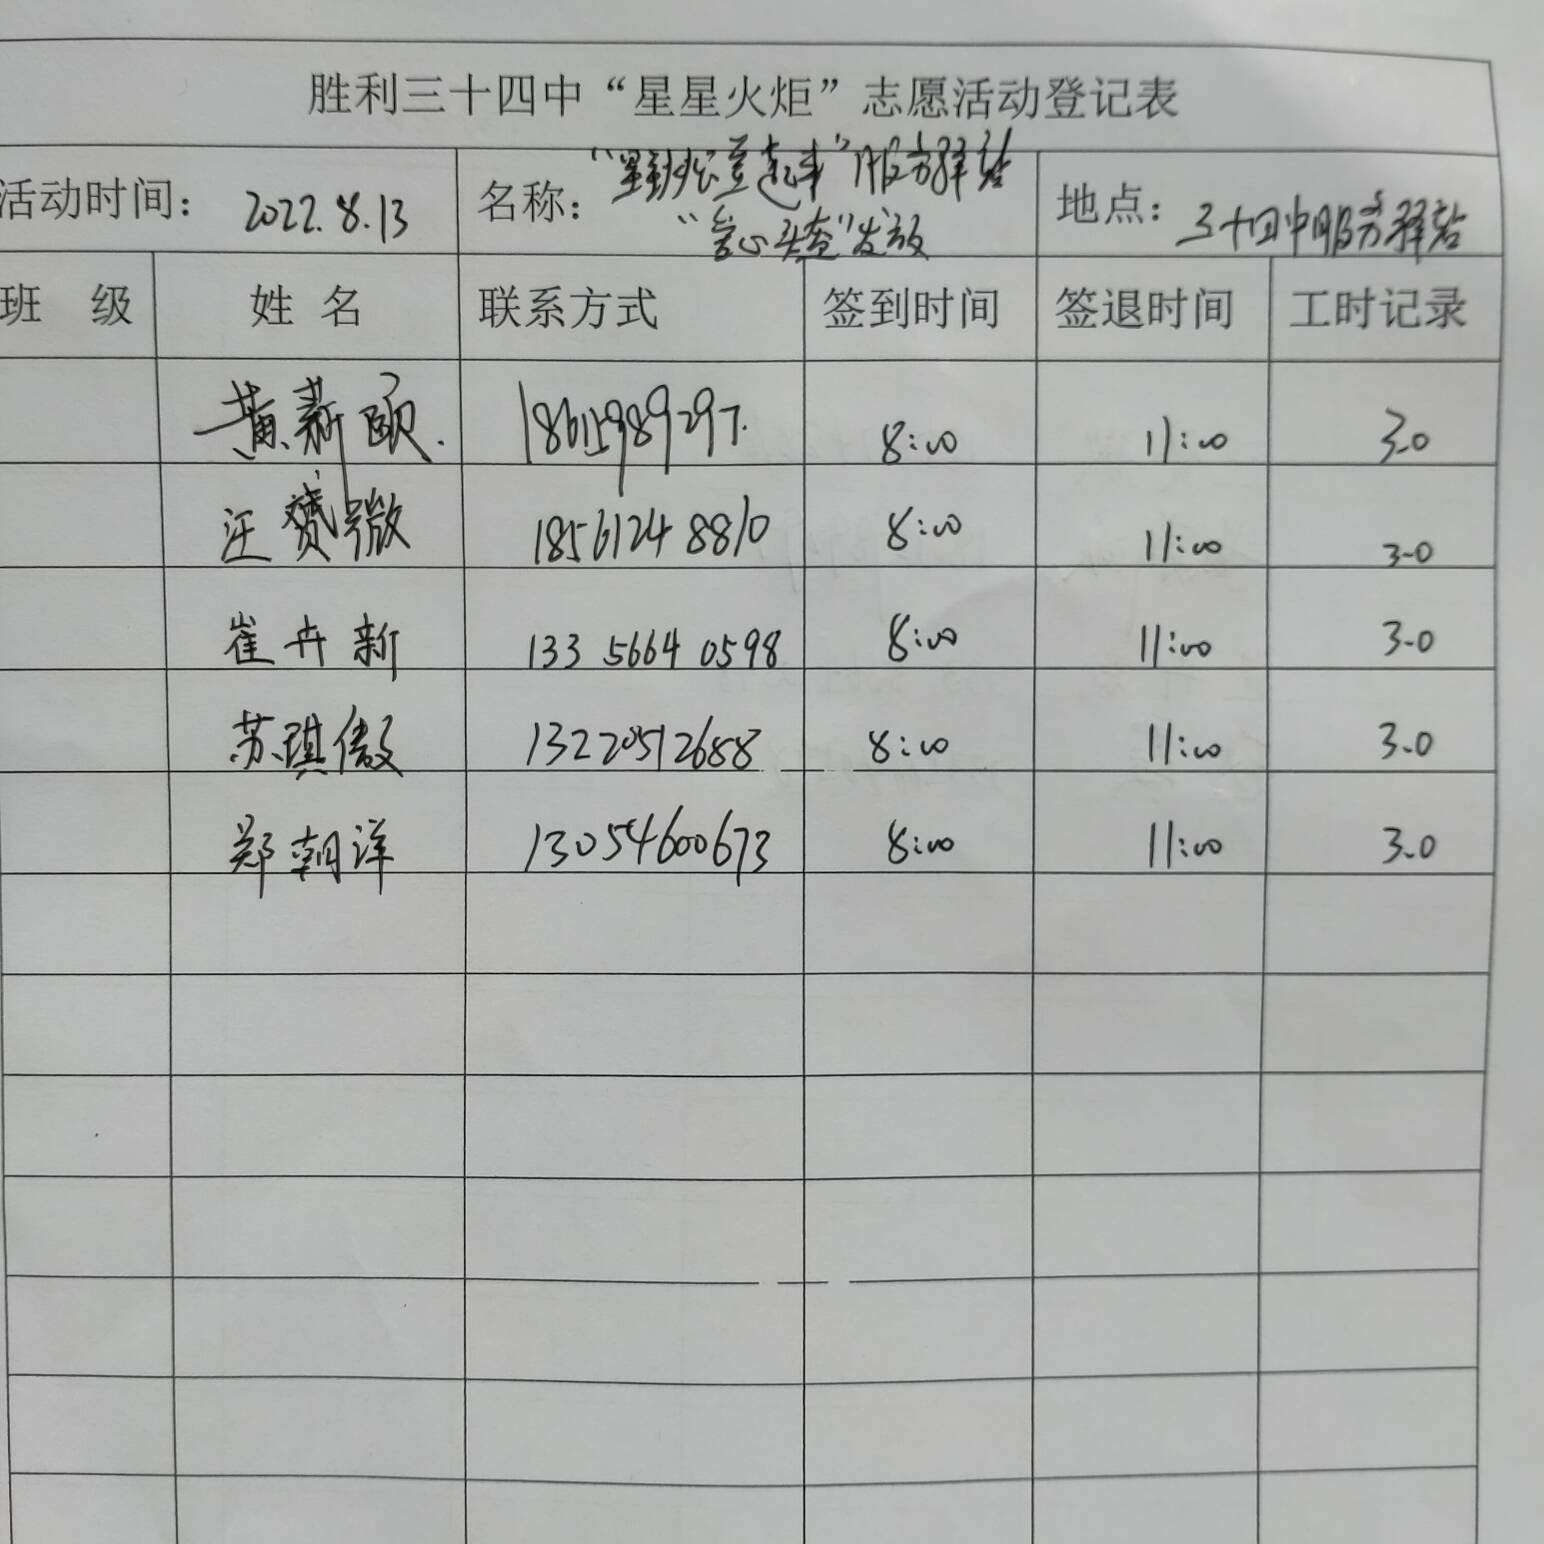 胜利三十四中“星星火炬”志愿活动登记表
活动时间： 2022.8.13 名称： 服务驿站 “爱心 ”发放 地点： 三十四中服务驿站
班 级 姓 名 联系方式 签到时间 签退时间 工时记录
黄薪颐 8:00 11:00 3.0
汪赟微 18561248810 8:00 11:00 3.0
崔卉新 133 5664 0598 8:00 11:00 3.0
苏琪傲 13220512688 8:00 11:00 3.0
郑朝洋 13054600673 8:00 11:00 3.0